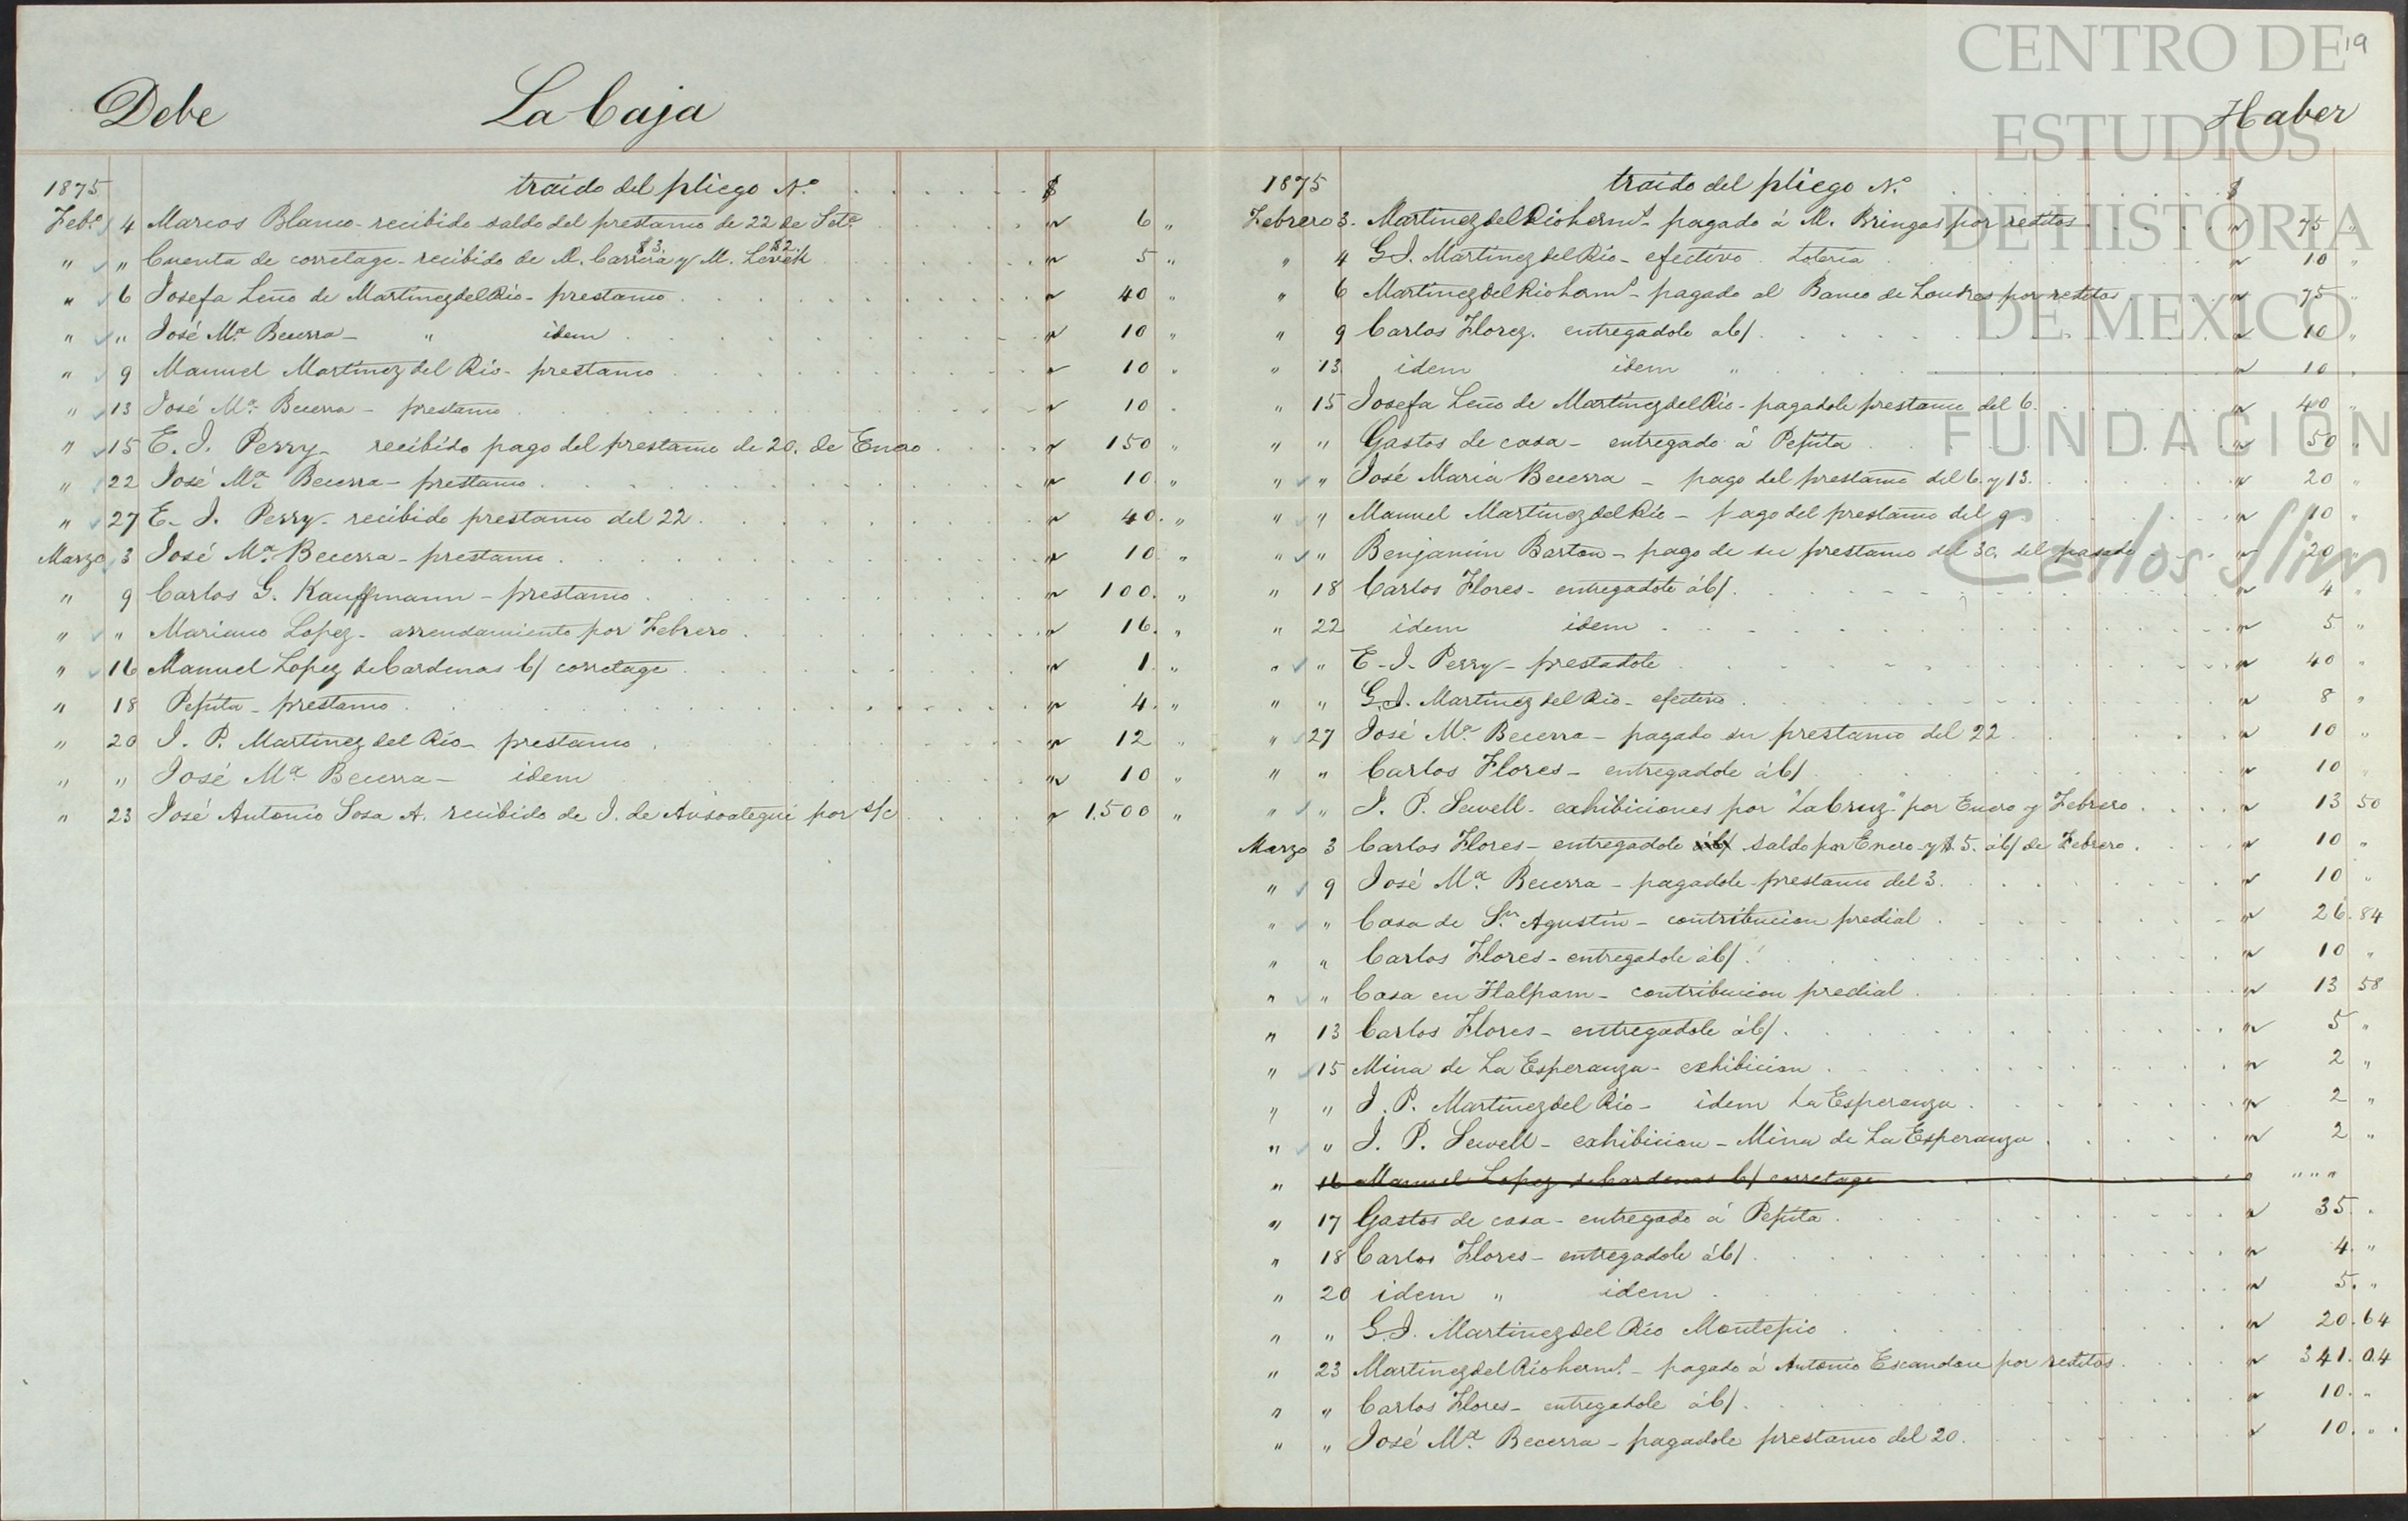 Debe La Caja
1875 traido del pliego No. $
Febo. 4 Marcos Blanco - recibido saldo del prestamo de 22 de Sete. " 6 "
" " Cuenta de corretage - recibido de M. Carrera $3. y M. Levick $2. " 5 "
" 6 Josefa Leño de Martinez del Rio - prestamo " 40 "
" " José Ma. Becerra - " idem " 10 "
" 9 Manuel Martinez del Rio - prestamo " 10 "
" 13 José Ma. Becerra - prestamo " 10 "
" 15 E. J. Perry - recibido pago del prestamo de 20. de Enero " 150 "
" 22 José Ma. Becerra - prestamo " 10 "
" 27 E. J. Perry - recibido prestamo del 22 " 40. "
Marzo 3 José Ma. Becerra - prestamo " 10 "
" 9 Carlos G. Kauffmann - prestamo " 100. "
" " Mariano Lopez - arrendamiento por Febrero " 16. "
" 16 Manuel Lopez de Cardenas C/ corretage " 1. "
" 18 Pepita - prestamo " 4. "
" 20 J. P. Martinez del Rio - prestamo " 12 "
" " José Ma. Becerra - idem " 10 "
" 23 José Antonio Sosa A. recibido de J. de Ansoategui por s/c " 1.500 "
19
Haber
1875 traido del pliego No. $
Febrero 3. Martinez del Rio herms. - pagado á M. Bringas por reditos " 75 "
" 4 G. J. Martinez del Rio - efectivo. Loteria " 10 "
" 6 Martinez del Rio herms. - pagado al Banco de Londres por reditos " 75 "
" 9 Carlos Florez. entregadole áC/ " 10 "
" 13 idem idem " " 10 "
" 15 Josefa Leño de Martinez del Rio - pagadole prestamo del 6. " 40 "
" " Gastos de casa - entregado á Pepita " 50 "
" " José Maria Becerra - pago del prestamo del 6. y 13. " 20 "
" " Manuel Martinez del Rio - pago del prestamo del 9 " 10 "
" " Benjamin Barton - pago de su prestamo del 30, del pasado " 20 "
" 18 Carlos Flores - entregadole áC/ " 4 "
" 22 idem idem " 5 "
" " E. J. Perry - prestadole " 40 "
" " G. J. Martinez del Rio - efectivo " 8 "
" 27 José Ma. Becerra - pagado su prestamo del 22 " 10 "
" " Carlos Flores - entregadole áC/ " 10 "
" " J. P. Sewell - exhibiciones por "La Cruz" por Enero y Febrero " 13 50
Marzo 3 Carlos Flores - entregadole áC/ saldo por Enero y $. 5. áC/ de Febrero " 10 "
" 9 José Ma. Becerra - pagadole prestamo del 3. " 10 "
" " Casa de Sn. Agustin - contribucion predial " 26. 84
" " Carlos Flores - entregadole áC/ " 10 "
" " Casa en Tlalpam - contribucion predial " 13 58
" 13 Carlos Flores - entregadole áC/ " 5 "
" 15 Mina de La Esperanza - exhibicion " 2 "
" " J. P. Martinez del Rio - idem La Esperanza " 2 "
" " J. P. Sewell - exhibicion - Mina de La Esperanza " 2 "
" 16 Manuel Lopez de Cardenas C/ corretage " " " "
" 17 Gastos de casa - entregado á Pepita " 35. "
" 18 Carlos Flores - entregadole áC/ " 4. "
" 20 idem " idem " 5. "
" " G. J. Martinez del Rio Montepio " 20. 64
" 23 Martinez del Rio herms. - pagado á Antonio Escandon por reditos " 341. 04
" " Carlos Flores - entregadole áC/ " 10. "
" " José Ma. Becerra - pagadole prestamo del 20. " 10. "
CENTRO DE
ESTUDIOS
DE HISTORIA
DE MEXICO
FUNDACIÓN
Carlos Slim